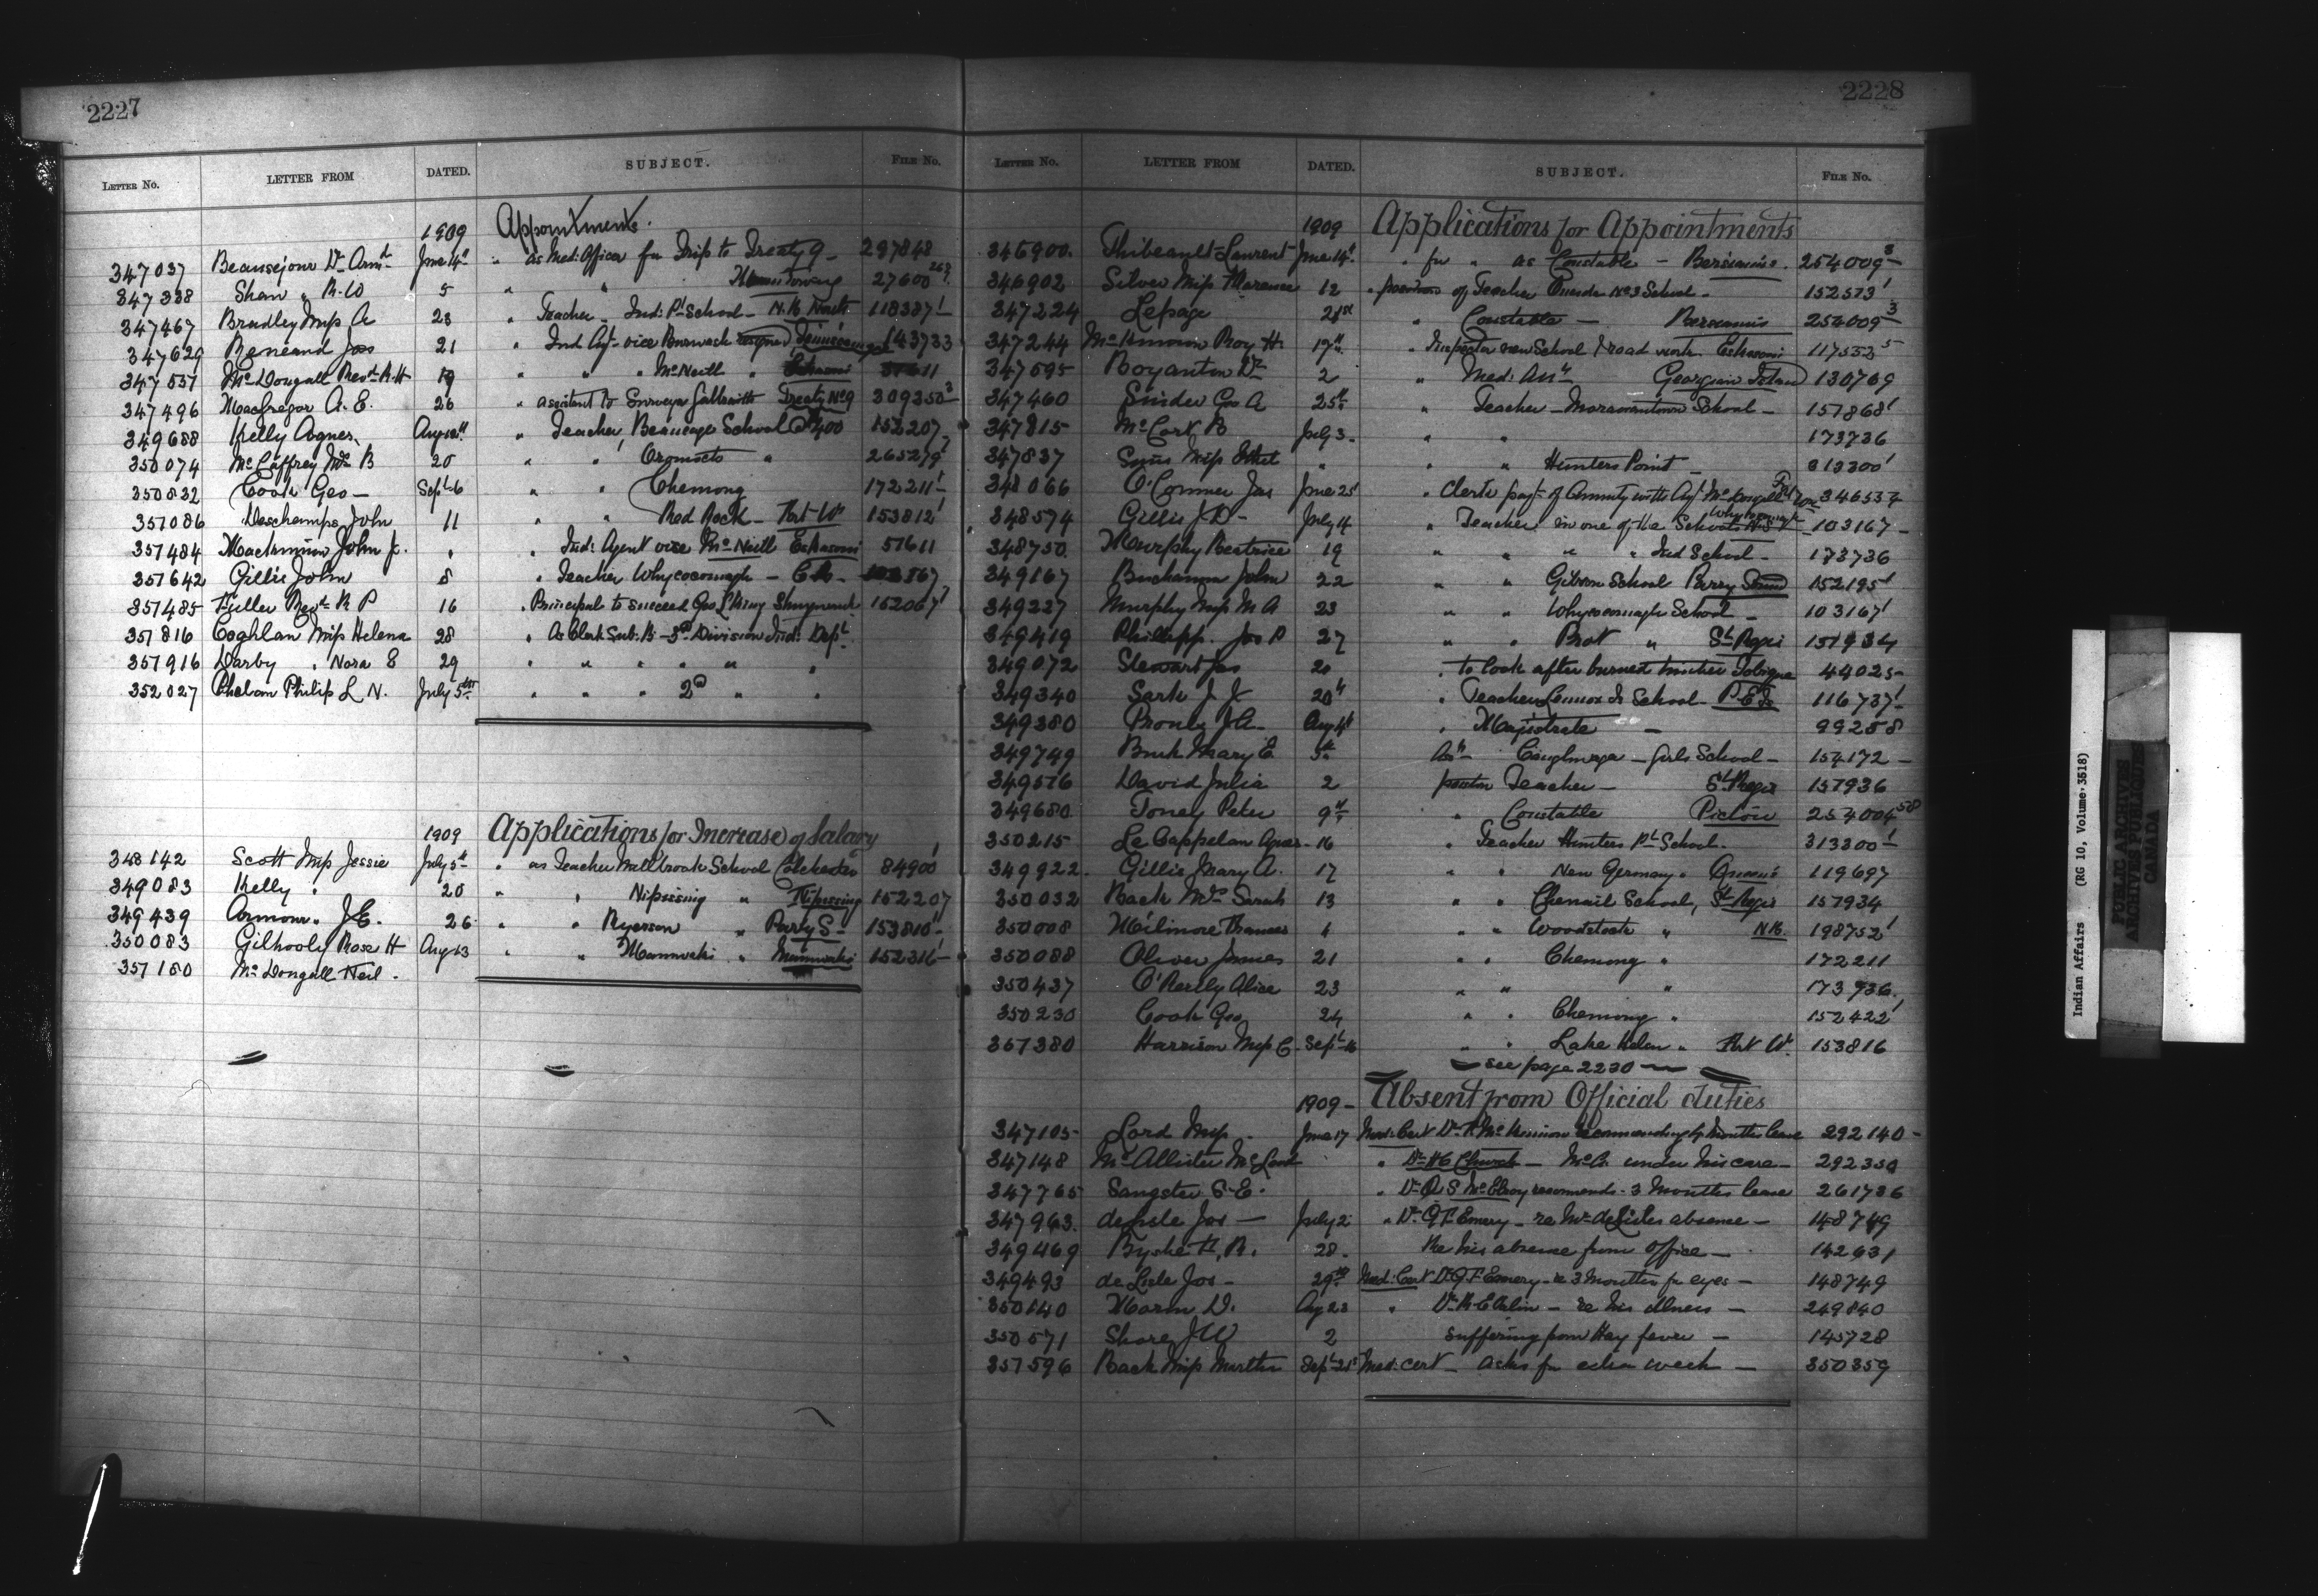 2227
LETTER NO. LETTER FROM DATED. SUBJECT. FILE NO.
1909 Appointments.
347037 Beausejour Dr Arm June 14th " as Med: Officer for Trip to Treaty 9 297848
347338 Shaw " R. W 5 " " 27600
347467 Bradley Miss A 23 " Teacher Ind: Pt School N.B. 118387
347629 Jas 21 " Ind Agt vice Burwash 143733
347551 McDougall Revd R. H 19 " " " McNeill " Eskasoni 51611
347496 MacGregor A. E. 26 " assistant to Surveyor Galbraith Treaty No 9 309350
349688 Kelly Agnes Aug 18th " Teacher, Beaucage School @ 400 152207
350074 McCaffrey Mrs B 20 " " Oromocto " 265279
350832 Cook Geo — Sept 6 " " Chemong 172211
351086 Deschamps John 11 " " Red Rock — Port Wm 153812
351484 MacKinnon John J. " " Ind: Agent vice McNeill Eskasoni 51611
351642 Gillis John 8 " Teacher Whycocomagh — C.B — 103167
351485 Fuller Revd B P 16 " Principal to succeed Geo L King Shingwauk 152067
351816 Coghlan Miss Helena 28 " As Clerk Sub. B — 3rd Division Ind: Dept
351916 Darby " Nora E 29 " " " " " "
352027 Phelan Philip L N. July 5th " " " 2d " "
1909 Applications for Increase of Salary
348142 Scott Miss Jessie July 5th " as Teacher Millbrook School Colchester 84900
349083 Kelly " 20 " " Nipissing " Nipissing 152207
349439 Armour " J. E. 26 " " Ryerson " Parry S — 153810
350083 Gilhooly Rose H Aug 13 " " Maniwaki " Maniwaki 152316
351180 McDougall Neil .
2228
LETTER NO. LETTER FROM DATED. SUBJECT. FILE NO.
1909 Applications for Appointments
346900 Thibeault Laurent June 14th " for " as Constable — Bersimis. 254009 3
346902 Silver Miss Florence 12 " position of Teacher Oneida No 3 School — 152573
347224 Lepage 21st " Constable — Bersimis 254009 3
347244 McKinnon Roy H. 17th " Inspector new School & road work Eskasoni 117552 5
347595 Boyanton Dr 2 " Med: Att Georgian Island 130769
347460 Snider Geo A 25th " Teacher — Moraviantown School — 151868
347815 McCort B July 3 " " 173736
347837 Sims Miss Ethel " " " Hunters Point — 313300
348066 O'Connor Jas June 25 " Clerk payt of Annuity with Agt McDougall 346537
348574 Gillis J. D — July 14 " Teacher in one of the Schools N.S 103167
348750 Murphy Beatrice 19 " " " " Ind School — 173736
349167 Buchanan John 22 " " Gibson School Parry Sound 152195
349227 Murphy Miss M A 23 " " Whycocomagh School — 103167
349419 Phillipp. Jos P 27 " " Prot " St Regis 151934
349072 Stewart Jas 20 " to look after burned timber Tobique 44025
349340 Sark J. J 20th " Teacher Lennox Id School — P.E.I 116737
349380 J. A. Aug 4th " Magistrate — 99258
349749 Buck Mary E 5th Asst Caughnawaga — Girls School — 154172
349516 David Julia 2 position Teacher — St Regis 151936
349680 Toney Peter 9th " Constable Pictou 254004 508
350215 Le Cappelan Agnes 16 " Teacher Hunters Pt School — 313300
349922 Gillis Mary A. 17 " " New Germany " Queens 119697
350032 Back Mrs Sarah 13 " " Chenail School, St Regis 151934
350008 Milmore Frances 1 " " Woodstock " N.B. 198752
350088 Oliver James 21 " " Chemong " 172211
350437 O'Rierly Alice 23 " " " 173936
350230 Cook Geo 24 " " Chemong " 152422
351380 Harrison Miss C. Sept 16 " " Lake Helen " Port Wm. 153816
— see page 2230 —
1909 — Absent from Official duties
347105 Lord Miss June 17 Med: Cert Dr McKinnon recommending months leave 292140
347148 McAllister " Dr H C Church — McA. under his care — 292350
347765 Sangster S. E. " Dr S McElroy recomends 3 Months leave 261736
347963 deLisle Jos — July 2 " Dr G. F. Emery — re Mr deLisles absence — 148749
349469 Byshe H. R. 28 Re his absence from Office — 142631
349493 de Lisle Jos — 29th Med: Cert Dr G. F. Emery — re 3 Months for eyes — 148749
350140 D. Aug 23 " re his illness — 249840
350571 Shore J W 2 suffering from Hay fever — 145728
351596 Back Miss Sept 21st Med: cert — asks for extra week — 350359
Indian Affairs (RG 10, Volume 3518)
PUBLIC ARCHIVES
ARCHIVES PUBLIQUES
CANADA